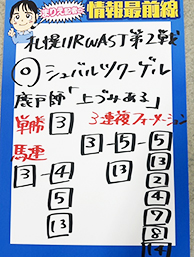 情報最前線
札幌11R WASJ第2戦
◎シュバルツクーゲル
鹿戸師「上づみある」
単勝 3 3連複フォーメーション
馬連 3-5-5
3-4 13 13
5 2
13 4
7
8
14